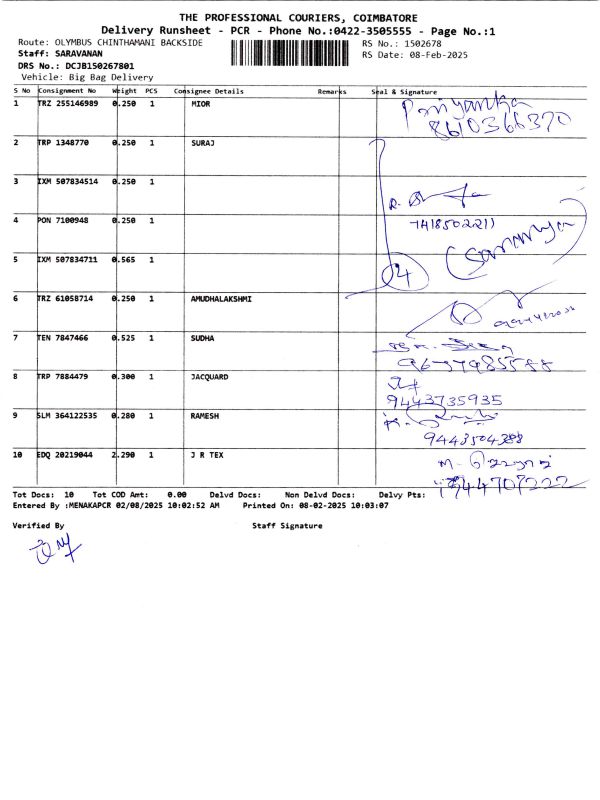 THE PROFESSIONAL COURIERS, COIMBATORE
Delivery Runsheet - PCR - Phone No.:0422-3505555 - Page No.:1
Route: OLYMBUS CHINTHAMANI BACKSIDE RS No.: 1502678
Staff: SARAVANAN RS Date: 08-Feb-2025
DRS No.: DCJB150267801
Vehicle: Big Bag Delivery
S No Consignment No Weight PCS Consignee Details Remarks Seal & Signature
1 TRZ 255146989 0.250 1 MIOR Priyanka
8610366370
2 TRP 1348770 0.250 1 SURAJ
3 IXM 507834514 0.250 1
4 PON 7100948 0.250 1 7418502211
(Saranya)
5 IXM 507834711 0.565 1 4
6 TRZ 61058714 0.250 1 AMUDHALAKSHMI
7 TEN 7847466 0.525 1 SUDHA
8 TRP 7884479 0.300 1 JACQUARD
9443735935
9 SLM 364122535 0.280 1 RAMESH
9443504388
10 EDQ 20219044 2.290 1 J R TEX
Tot Docs: 10 Tot COD Amt: 0.00 Delvd Docs: Non Delvd Docs: Delvy Pts:
Entered By :MENAKAPCR 02/08/2025 10:02:52 AM Printed On: 08-02-2025 10:03:07
Verified By Staff Signature